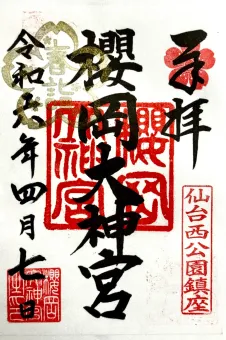 奉拝
仙台西公園鎮座
櫻岡大神宮
櫻岡大神宮
春詣
令和六年四月七日